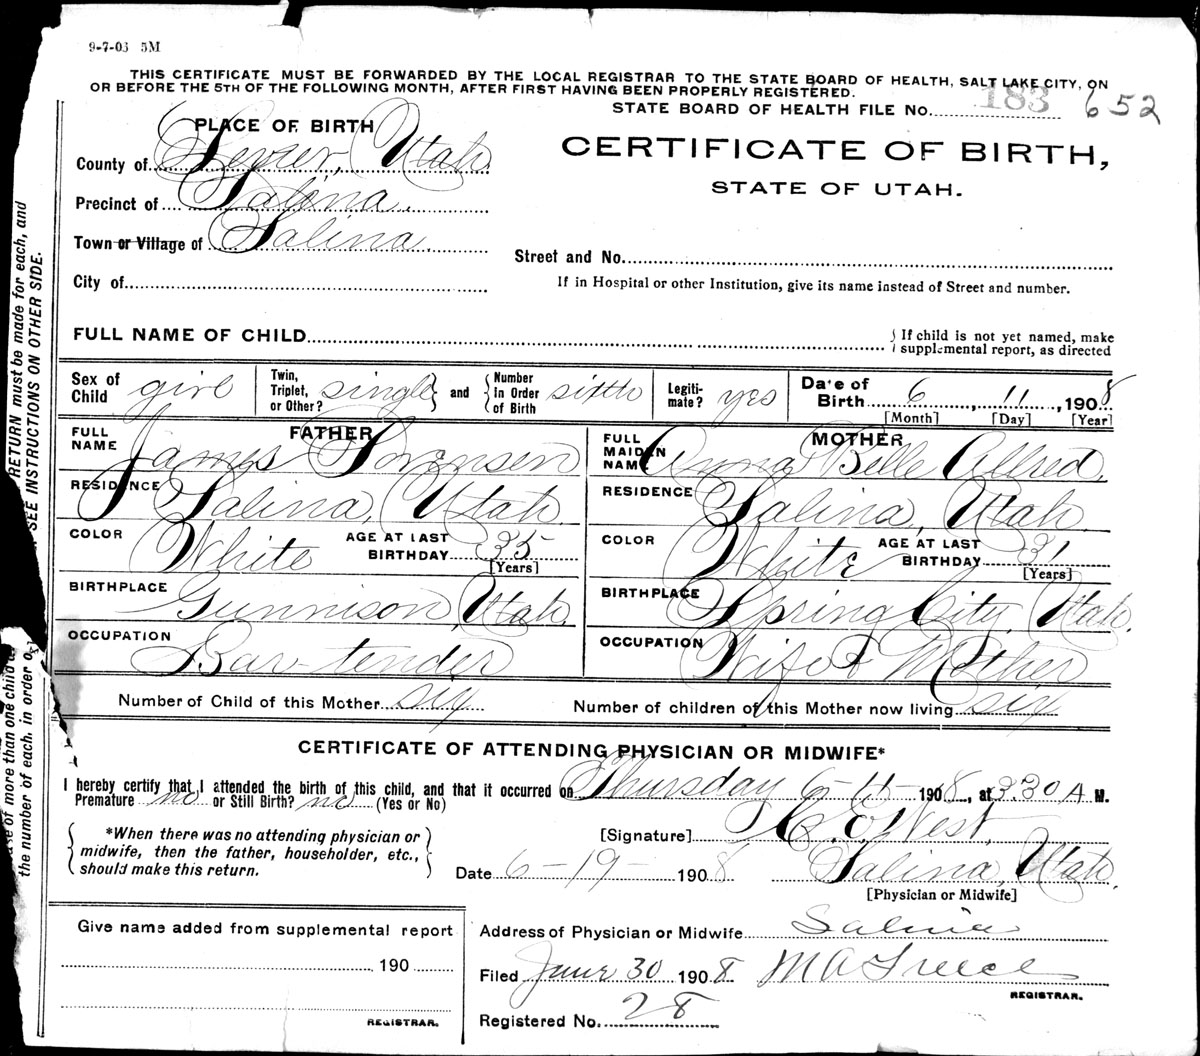 9-7-03 5M
THIS CERTIFICATE MUST BE FORWARDED BY THE LOCAL REGISTRAR TO THE STATE BOARD OF HEALTH, SALT LAKE CITY, ON
OR BEFORE THE 5TH OF THE FOLLOWING MONTH, AFTER FIRST HAVING BEEN PROPERLY REGISTERED.
STATE BOARD OF HEALTH FILE No. 183 652
PLACE OF BIRTH
County of Sevier, Utah
CERTIFICATE OF BIRTH,
STATE OF UTAH.
Precinct of Salina.
Town or Village of Salina.
Street and No.
City of
If in Hospital or other Institution, give its name instead of Street and number.
FULL NAME OF CHILD
If child is not yet named, make
supplemental report, as directed
Sex of Child girl Twin, Triplet, or Other? single and Number in Order of Birth sixth Legiti-mate? yes Date of Birth 6, 11, 1908
[Month] [Day] [Year]
FATHER
FULL NAME James Sorensen
RESIDENCE Salina, Utah.
COLOR White AGE AT LAST BIRTHDAY 35
[Years]
BIRTHPLACE Gunnison, Utah.
OCCUPATION Bar-tender
MOTHER
FULL MAIDEN NAME Anna Belle Allred.
RESIDENCE Salina, Utah.
COLOR White AGE AT LAST BIRTHDAY 31
[Years]
BIRTHPLACE Spring City, Utah.
OCCUPATION Wife & Mother
Number of Child of this Mother six Number of children of this Mother now living six
CERTIFICATE OF ATTENDING PHYSICIAN OR MIDWIFE*
I hereby certify that I attended the birth of this child, and that it occurred on Thursday 6-11-1908, at 3.30 A M.
Premature no or Still Birth? no (Yes or No)
*When there was no attending physician or
midwife, then the father, householder, etc.,
should make this return.
[Signature] West,
Date 6-19-1908 Salina, Utah.
[Physician or Midwife]
Give name added from supplemental report
190
REGISTRAR.
Address of Physician or Midwife Salina
Filed June 30 1908 M A
REGISTRAR.
Registered No. 28
RETURN must be made for each, and
SEE INSTRUCTIONS ON OTHER SIDE.
of more than one child
the number of each, in order